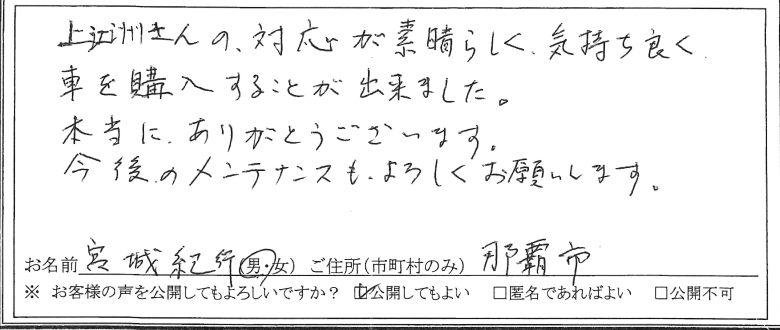 上江洲さんの、対応が素晴らしく、気持ち良く
車を購入することが出来ました。
本当に、ありがとうございます。
今後のメンテナンスも、よろしくお願いします。
お名前 宮城紀行 (男・女) ご住所(市町村のみ) 那覇市
※ お客様の声を公開してもよろしいですか? ☑公開してもよい □匿名であればよい □公開不可